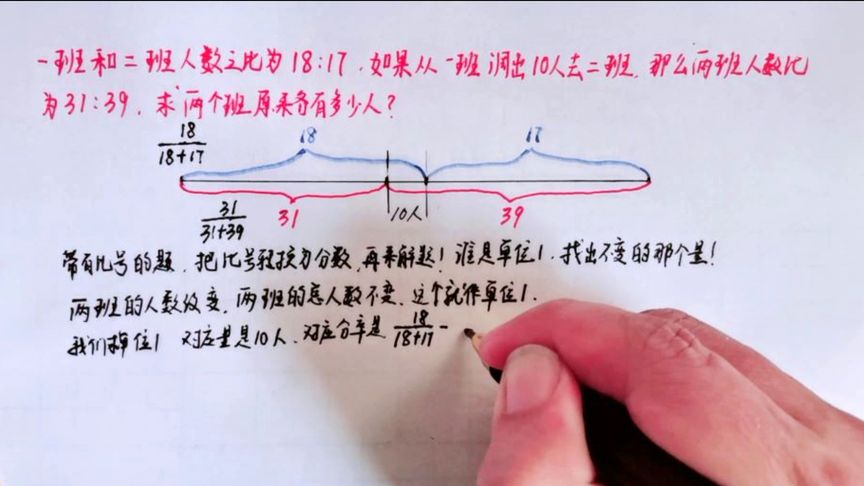 一班和二班人数之比为18:17.如果从一班调出10人去二班,那么两班人数比
为31:39,求两个班原来各有多少人?
18/18+17
18
17
31/31+39
31
10人
39
带有比号的题,把比号转换为分数,再来解题!谁是单位1.找出不变的那个量!
两班的人数改变,两班的总人数不变,这个就作单位1.
我们单位1 对应量是10人、对应分率是 18/18+17 -